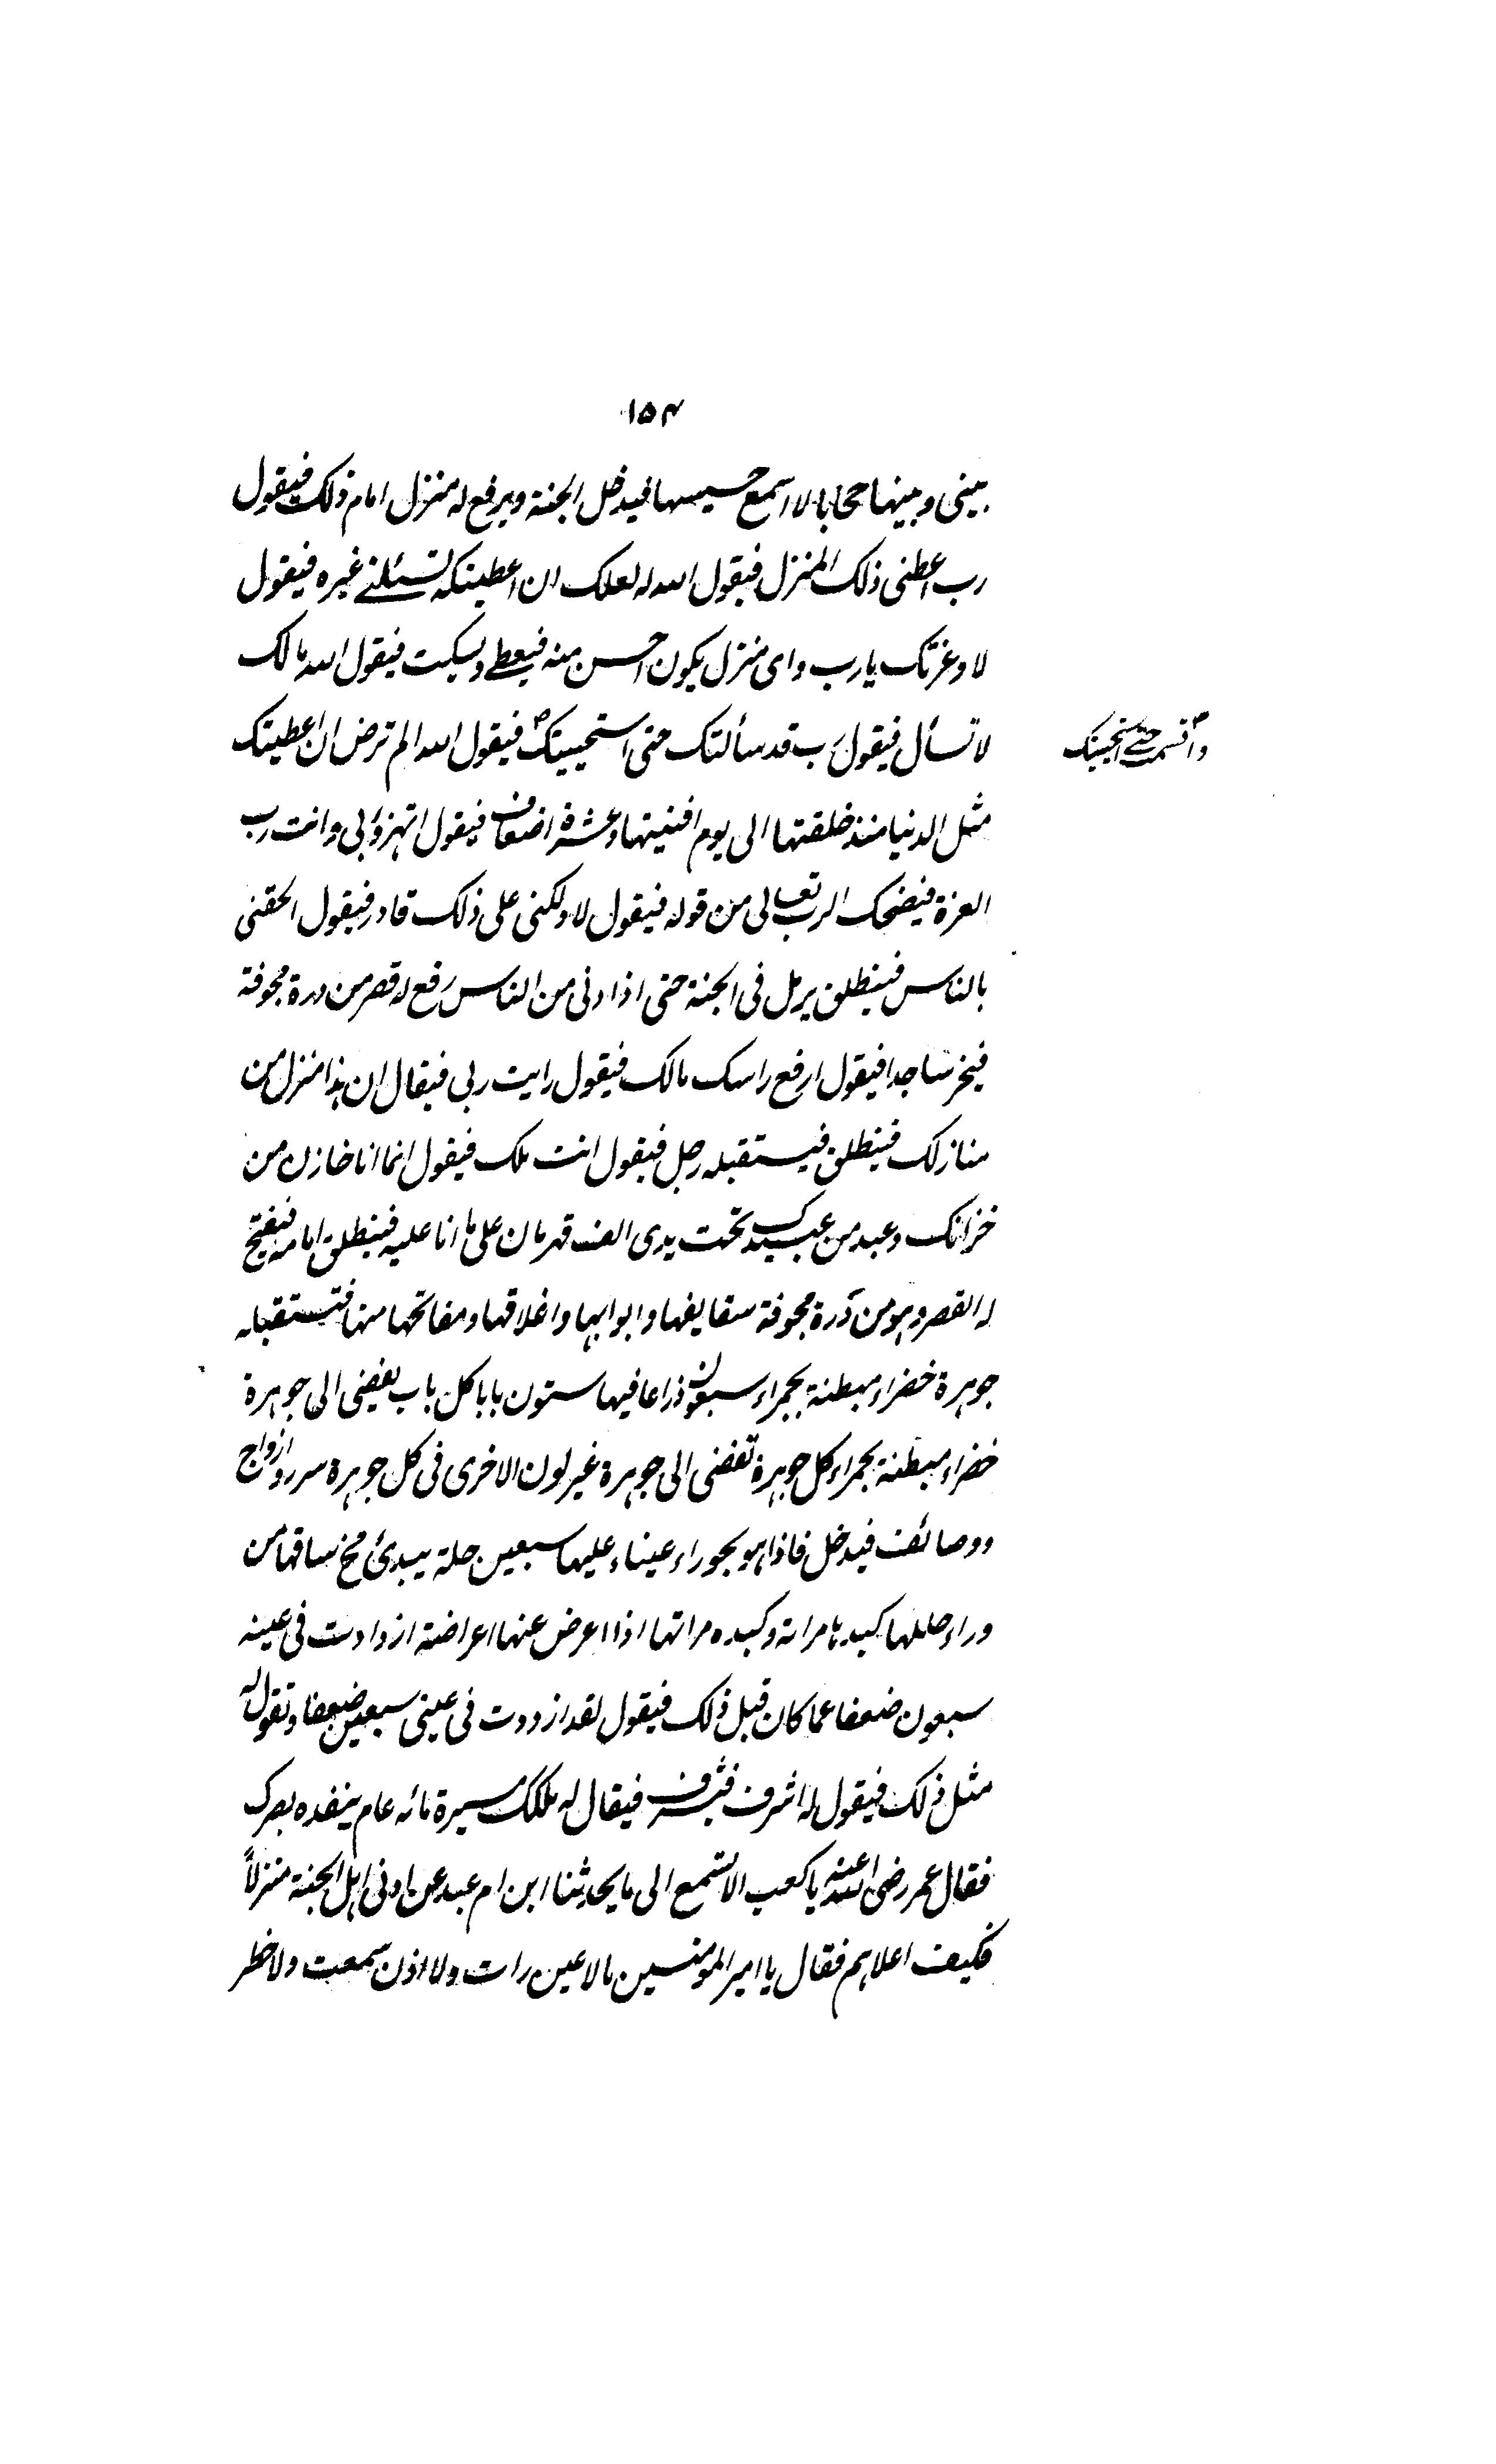 ۱۵۴
بینی وبینها حجابا لا اسمع حسیسها لیدخل الجنة ویرفع له منزل امام ذلک فیقول
رب اعطنی ذلک المنزل فیقول الله له لعلک ان اعطیتکه تسئلنے غیره فیقول
لا وعزتک یا رب وای منزل یکون احسن منه فیعطے ویسکت فیقول الله مالک
لا تسأل فیقول رب قد سألتک حتی استحییتک فیقول الله الم ترض ان اعطیتک
واقسمت حتے استحییتک
مثل الدنیا منذ خلقتها الی یوم افنیتها وعشرة اضعاف فیقول اتهزؤ بی وانت رب
العزة فیضحک الرب تعالی من قوله فیقول لا ولکنی علی ذلک قادر فیقول الحقنی
بالناس فینطلق یرمل فی الجنة حتی اذا دنی من الناس رفع له قصر من درة مجوفة
فیخر ساجدا فیقول ارفع راسک مالک فیقول رایت ربی فیقال ان هذا منزل من
منازلک فینطلق فیستقبله رجل فیقول انت ملک فیقول انما انا خازن من
خزانک وعبد من عبیدک تحت یدی الف قهرمان علی ما انا علیه فینطلق امامه فیفتح
له القصر وهو من دُرة مجوفة سقایفها وابوابها واغلاقها ومفاتحها منها فتستقبله
جوهرة خضراء مبطنة بحمراء سبعون ذراعا فیها ستون بابا کل باب یفضی الی جوهرة
خضراء مبطنة بحمراء کل جوهرة تفضی الی جوهرة غیر لون الاخری فی کل جوهرة سرر وازواج
ووصائف فیدخل فاذا هو بحوراء عیناء علیها سبعین حلة یبدئ مخ ساقها من
وراء حللها کبدها مراته وکبده مراتها اذا اعرض عنها اعراضة ازدادت فی عینه
سبعون ضعفا عما کان قبل ذلک فیقول لقد ازددت فی عینی سبعین ضعفا وتقول له
مثل ذلک فیقول له اشرف فیشرف فیقال له ملکک مسیرة مائه عام ینفده بصرک
فقال عمر رضی الله عنه یا کعب الا تستمع الی ما یحدثنا ابن ام عبد عن ادنی اهل الجنة منزلاً
فکیف اعلاهم فقال یا امیر المومنین مالا عین رات ولا اذن سمعت ولا خطر